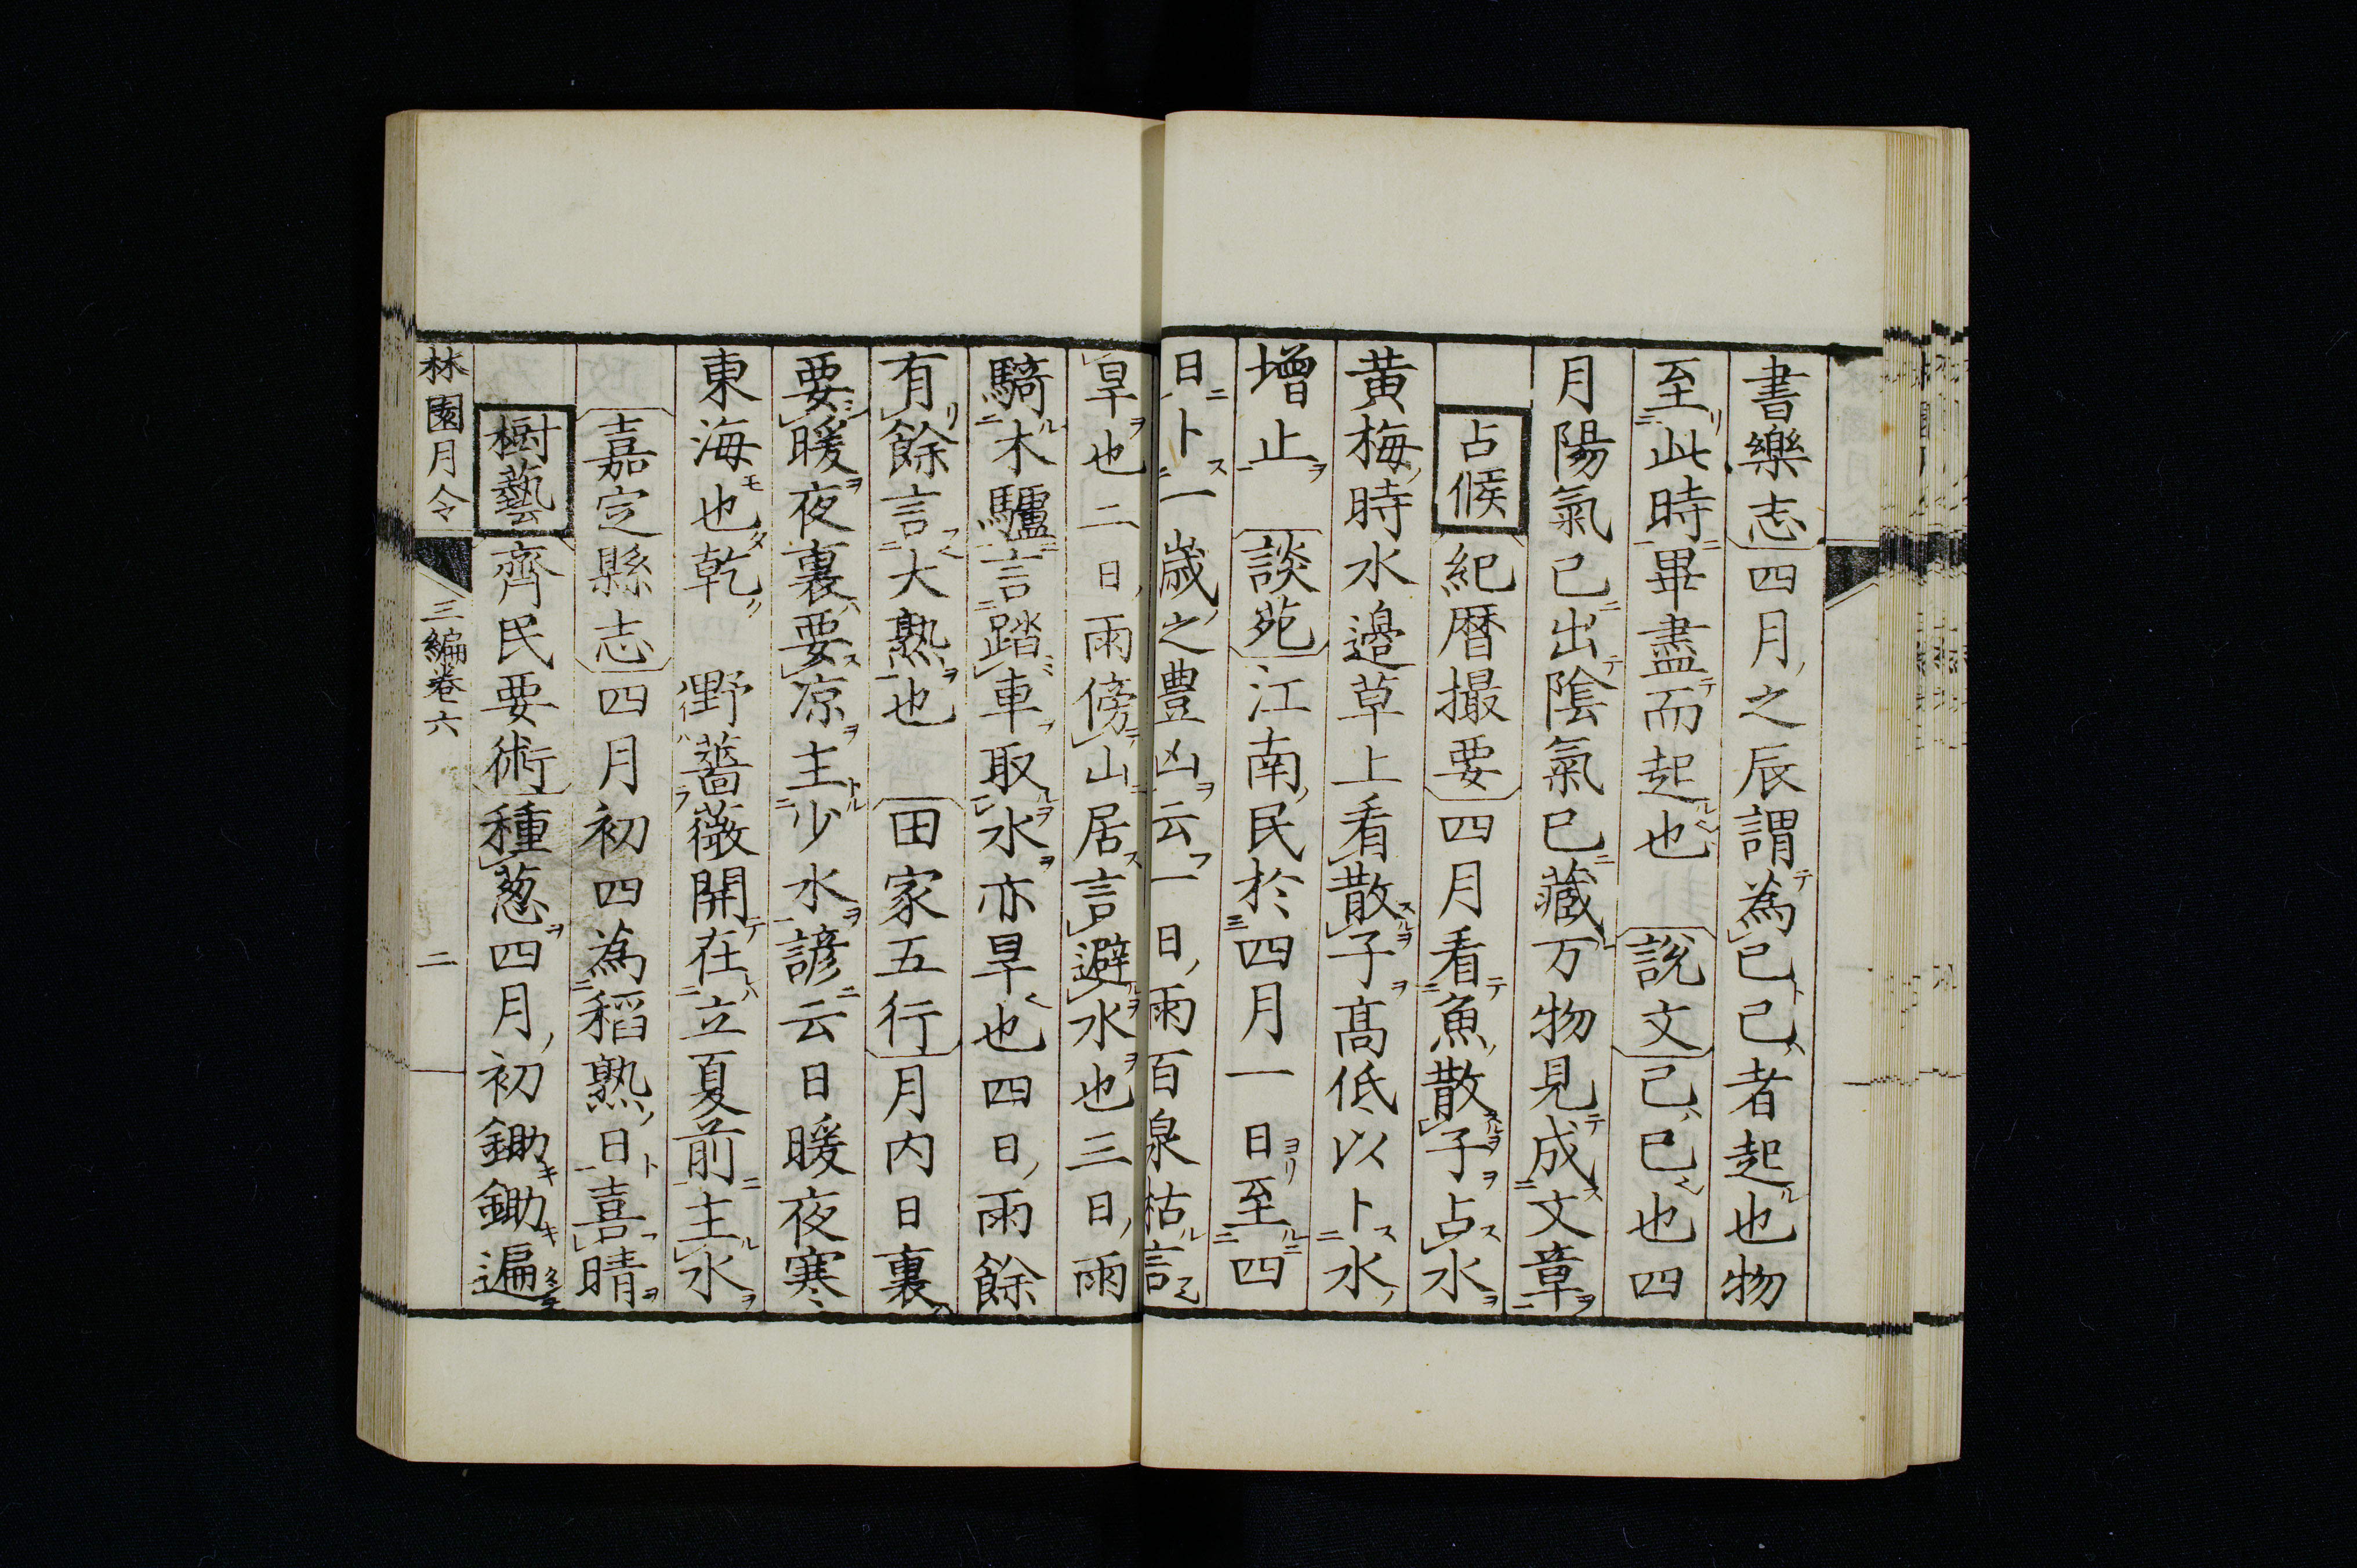 書樂志四月之辰謂為巳巳者起也物
至此時畢盡而起也　說文巳巳也四
月陽氣已出陰氣已藏万物見成文章
占候紀暦撮要四月看魚散子占水
黃梅時水邉草上看散子髙低以卜水
增止　談苑江南民於四月一日至四
日卜一歲之豊凶云一日雨百泉枯言
旱也二日雨傍山居言避水也三日雨
騎木驢言踏車取水亦旱也四日雨餘
有餘言大熟也　田家五行月内日裏
要暖夜裏要凉主少水諺云日暖夜寒
東海也乾　野薔薇開在立夏前主水
嘉定縣志四月初四為稻熟日喜晴
樹藝齊民要術種葱四月初鋤鋤遍
林園月令　三編卷六　二